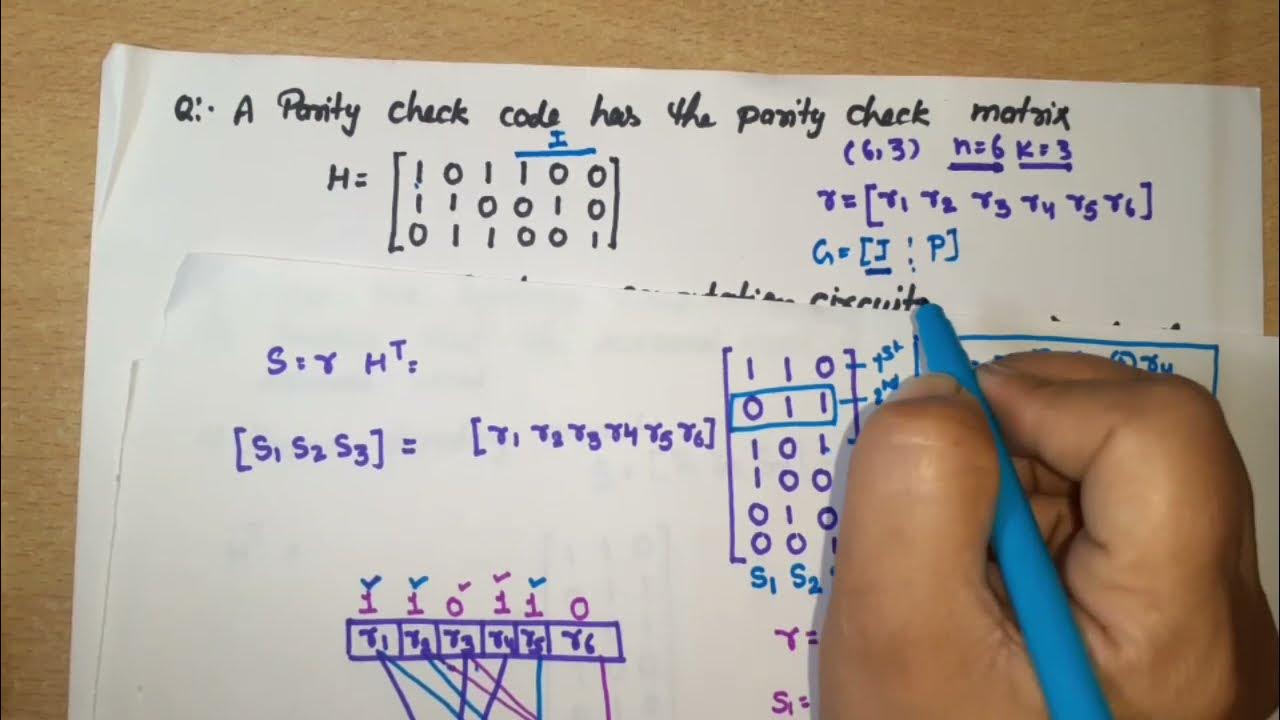 Q:. A Parity check code has the parity check matrix
I
(6,3) n=6 K=3
H= [1 0 1 1 0 0
1 1 0 0 1 0
0 1 1 0 0 1]
r=[r1 r2 r3 r4 r5 r6]
G=[I ⋮ P]
circuits
S=r Hᵀ=
[S1 S2 S3] = [r1 r2 r3 r4 r5 r6]
[1 1 0] 1st
0 1 1 2nd
1 0 1
1 0 0
0 1 0
0 0 1
S1 S2
r4
✓ ✓ ✓ ✓ ✓
1 1 0 1 1 0
r1 r2 r3 r4 r5 r6
r=
S1=